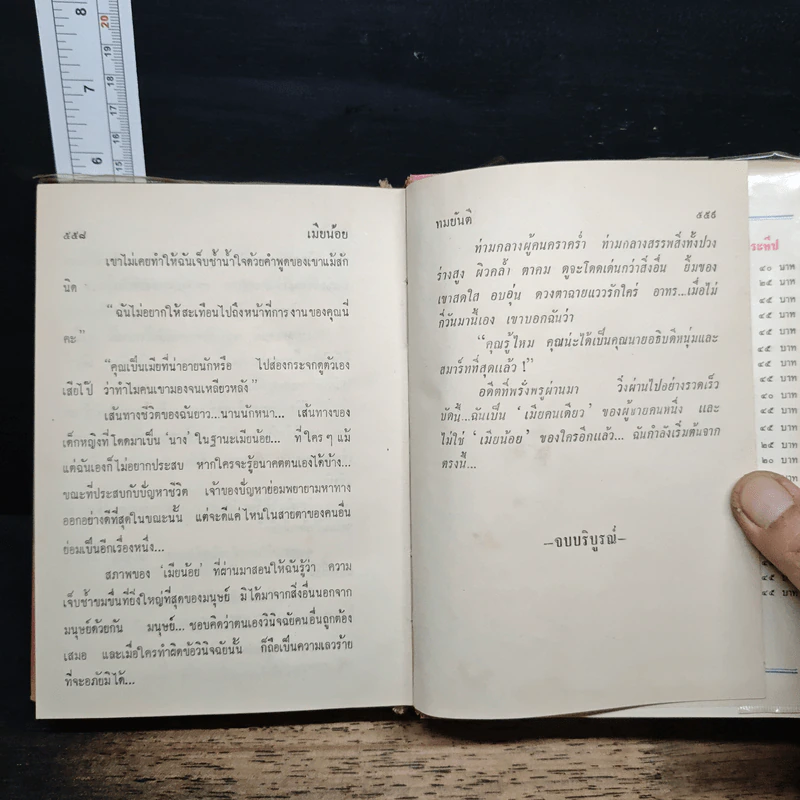 8
20
19
7
18
17
16
6
15
๕๕๘ เมียน้อย
เขาไม่เคยทำให้ฉันเจ็บช้ำน้ำใจด้วยคำพูดของเขาแม้สัก
นิด
“ฉันไม่อยากให้สะเทือนไปถึงหน้าที่การงานของคุณนี่
คะ”
“คุณเป็นเมียที่น่าอายนักหรือ ไปส่องกระจกดูตัวเอง
เสียไป๊ ว่าทำไมคนเขามองจนเหลียวหลัง”
เส้นทางชีวิตของฉันยาว...นานนักหนา... เส้นทางของ
เด็กหญิงที่โตดมาเป็น ‘นาง’ ในฐานะเมียน้อย... ที่ใครๆ แม้
แต่ฉันเองก็ไม่อยากประสบ หากใครจะรู้อนาคตตนเองได้บ้าง...
ขณะที่ประสบกับปัญหาชีวิต เจ้าของปัญหาย่อมพยายามหาทาง
ออกอย่างดีที่สุดในขณะนั้น แต่จะดีแค่ไหนในสายตาของคนอื่น
ย่อมเป็นอีกเรื่องหนึ่ง...
สภาพของ ‘เมียน้อย’ ที่ผ่านมาสอนให้ฉันรู้ว่า ความ
เจ็บช้ำขมขื่นที่ยิ่งใหญ่ที่สุดของมนุษย์ มิได้มาจากสิ่งอื่นนอกจาก
มนุษย์ด้วยกัน มนุษย์...ชอบคิดว่าตนเองวินิจฉัยคนอื่นถูกต้อง
เสมอ และเมื่อใครทำผิดข้อวินิจฉัยนั้น ก็ถือเป็นความเลวร้าย
ที่จะอภัยมิได้...
ทมยันตี ๕๕๙
ท่ามกลางผู้คนคราคร่ำ ท่ามกลางสรรพสิ่งทั้งปวง
ร่างสูง ผิวคล้ำ ตาคม ดูจะโดดเด่นกว่าสิ่งอื่น ยิ้มของ
เขาสดใส อบอุ่น ดวงตาฉายแววรักใคร่ อาทร...เมื่อไม่
กี่วันมานี้เอง เขาบอกฉันว่า
“คุณรู้ไหม คุณน่ะได้เป็นคุณนายอธิบดีหนุ่มและ
สมาร์ทที่สุดแล้ว !”
อดีตที่พรั่งพรูผ่านมา วิ่งผ่านไปอย่างรวดเร็ว
บัดนี้...ฉันเป็น ‘เมียคนเดียว’ ของผู้ชายคนหนึ่ง และ
ไม่ใช่ ‘เมียน้อย’ ของใครอีกแล้ว... ฉันกำลังเริ่มต้นจาก
ตรงนี้...
–จบบริบูรณ์–
๔๐ บาท
๒๕ บาท
๔๕ บาท
๔๕ บาท
๔๕ บาท
๔๕ บาท
๔๕ บาท
๔๕ บาท
๔๕ บาท
๔๕ บาท
๒๕ บาท
๒๐ บาท